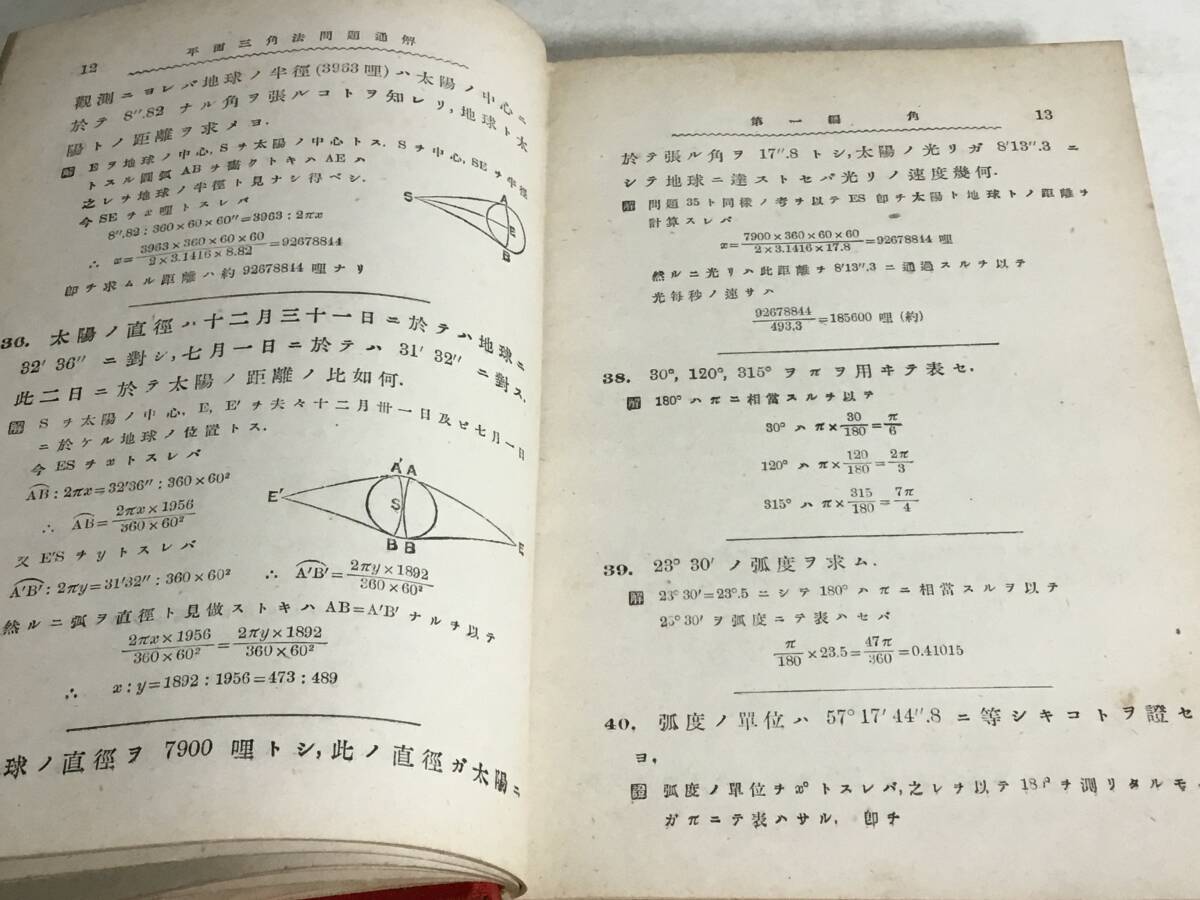 12
平面三角法問題通解
觀測ニヨレバ地球ノ半徑(3963哩)ハ太陽ノ中心ニ
於テ 8″.82 ナル角ヲ張ルコトヲ知レリ,地球ト太
陽トノ距離ヲ求メヨ.
解 Eヲ地球ノ中心,Sヲ太陽ノ中心トス.Sヲ中心,SEヲ半徑
トスル圓弧ABヲ畫クトキハAEハ
之レヲ地球ノ半徑ト見ナシ得ベシ.
今SEヲx哩トスレバ
8″.82:360×60×60″=3963:2πx
∴ x=3963×360×60×60/2×3.1416×8.82=92678844
卽チ求ムル距離ハ約92678844哩ナリ
S
A
E
B
36. 太陽ノ直徑ハ十二月三十一日ニ於テハ地球ニ
32′ 36″ ニ對シ,七月一日ニ於テハ 31′ 32″ ニ對ス.
此二日ニ於テ太陽ノ距離ノ比如何.
解 Sヲ太陽ノ中心,E, E′ヲ夫々十二月卅一日及ビ七月一日
ニ於ケル地球ノ位置トス.
今ESヲxトスレバ
AB:2πx=32′36″:360×60²
∴ AB=2πx×1956/360×60²
又E′Sヲyトスレバ
A′B′:2πy=31′32″:360×60² ∴ A′B′=2πy×1892/360×60²
E′
A′ A
S
B B
E
然ルニ弧ヲ直徑ト見做ストキハAB=A′B′ナルヲ以テ
2πx×1956/360×60²=2πy×1892/360×60²
∴ x:y=1892:1956=473:489
球ノ直徑ヲ 7900 哩トシ,此ノ直徑ガ太陽ニ
第一編 角
13
於テ張ル角ヲ 17″.8 トシ,太陽ノ光リガ 8′13″.3 ニ
シテ地球ニ達ストセバ光リノ速度幾何.
解 問題35ト同樣ノ考ヲ以テES卽チ太陽ト地球トノ距離ヲ
計算スレバ
x=7900×360×60×60/2×3.1416×17.8=92678844 哩
然ルニ光リハ此距離ヲ 8′13″.3 ニ通過スルヲ以テ
光每秒ノ速サハ
92678844/493.3=185600哩(約)
38. 30°, 120°, 315° ヲπヲ用ヰテ表セ.
解 180°ハπニ相當スルヲ以テ
30° ハ π×30/180=π/6
120° ハ π×120/180=2π/3
315° ハ π×315/180=7π/4
39. 23° 30′ ノ弧度ヲ求ム.
解 23° 30′=23°.5 ニシテ 180° ハπニ相當スルヲ以テ
23° 30′ ヲ弧度ニテ表ハセバ
π/180×23.5=47π/360=0.41015
40. 弧度ノ單位ハ 57°17′44″.8 ニ等シキコトヲ證セ
ヨ.
證 弧度ノ單位ヲx°トスレバ,之レヲ以テ180°ヲ測リタルモ
ガπニテ表ハサル,卽チ